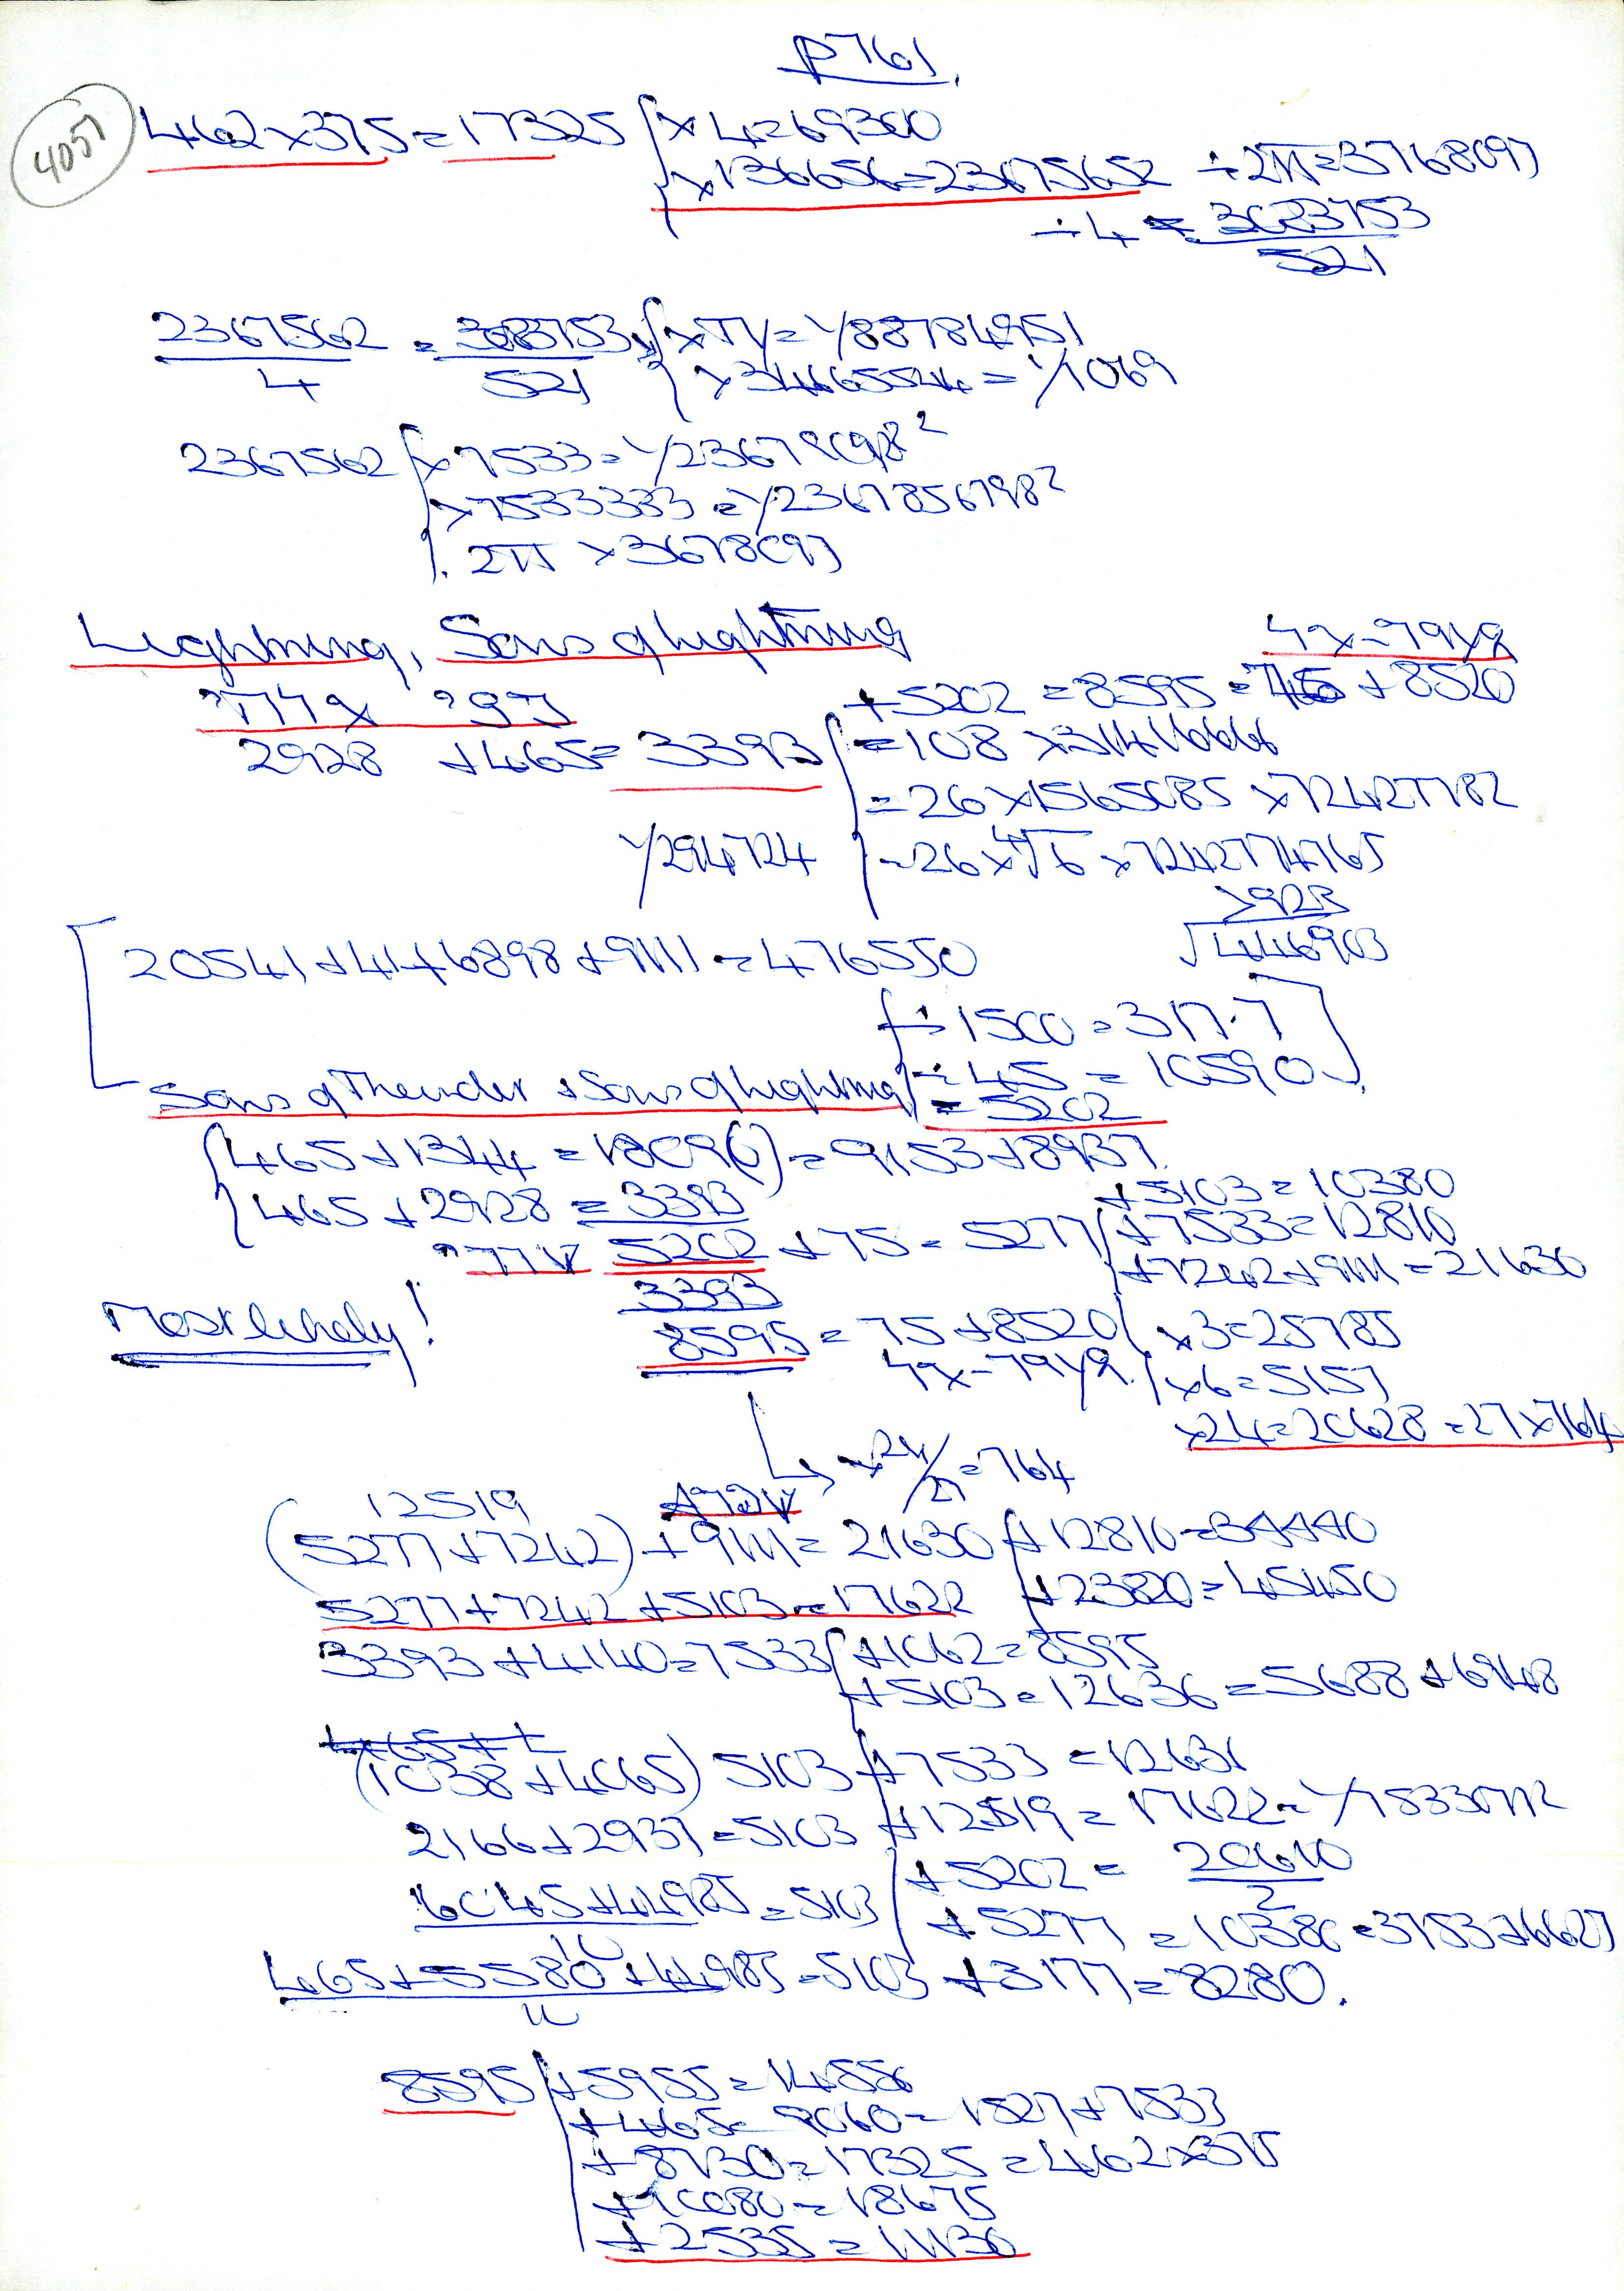 P761.
4051
462 x 375 = 17325 { x 4 = 69300
x 136656 = 23675652 ÷ 2π = 3768097
÷ 4 = 3083753
521
2367562 = 3083753 { x π = 1/88784951
4 521 { x 34665544 = 1/1069
2367562 { x 7533 = 1/23678098²
x 7533333 = 1/2367856798²
2π x 3678097
Lightning, Sons of Lightning
+5202 = 8595 = 75 + 8520
2928 + 465 = 3393 { = 108 x 31416666
= 26 x 1565085 x 72427782
1/294724 = 26 x ⁴√6 x 7242774765
√446903
20541 + 41 + 6898 + 9111 = 476550
÷ 1500 = 317.7
÷ 45 = 10590
Sons of Thunder + Sons of Lightning = 5202
{ 465 + 1344 = 1809(0) = 9153 + 8937
{ 465 + 2928 = 3393 +5103 = 10380
5202 + 75 = 5277 { +7533 = 12810
+7242 + 9111 = 21630
3393
Most likely! 8595 = 75 + 8520 { x 3 = 25785
x 6 = 5157
x 24 = 20628 = 27 x 764
x 24/27 = 764
12519
(5277 + 7242) + 9111 = 21630 { + 12810 = 34440
5277 + 7242 + 5103 = 17622 + 23820 = 45450
3393 + 4140 = 7533 { +1062 = 8595
+ 5103 = 12636 = 5688 + 6948
(1038 + 4065) 5103 { + 7533 = 12631
2166 + 2937 = 5103 + 12519 = 17622
+ 5202 = 20610
2
6045 + 44985 = 5103 + 5277 = 10380 = 3753 + 6627
10
465 + 5580 + 44985 = 5103 + 3177 = 8280.
10
8595 { + 5955 = 14550
+ 465 = 9060 = 1527 + 7533
+ 8730 = 17325 = 462 x 375
+ 10080 = 18675
+ 2535 = 11130